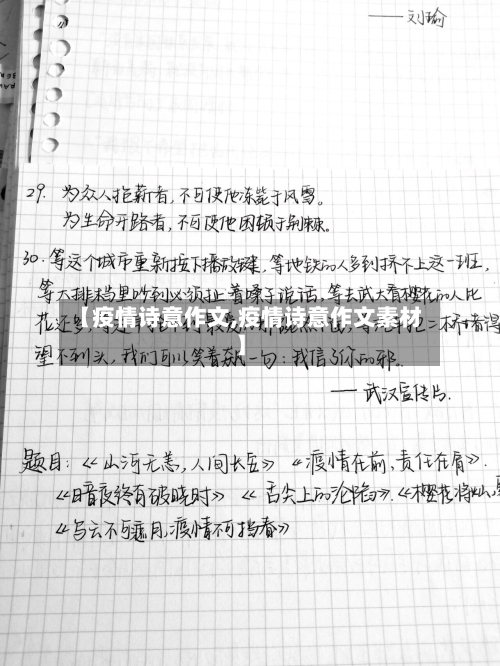 ——刘瑜
29. 为众人抱薪者，不可使他冻毙于风雪。
为生命开路者，不可使他困顿于荆棘。
30. 等这个城市重新按下播放键，等地铁的人多到挤不上这一班，
等大排档里吵到必须扯着嗓子说话，等去武大看樱花的人比
花还多
【疫情诗意作文,疫情诗意作文素材
】
望不到头，我们可以笑着飙一句：我信了你的邪。
——武汉宣传片.
题目：《山河无恙，人间长安》《疫情在前，责任在肩》.
《暗夜终有破晓时》《舌尖上的沦陷》.《樱花将灿,
《乌云不可遮月,疫情不可挡春》